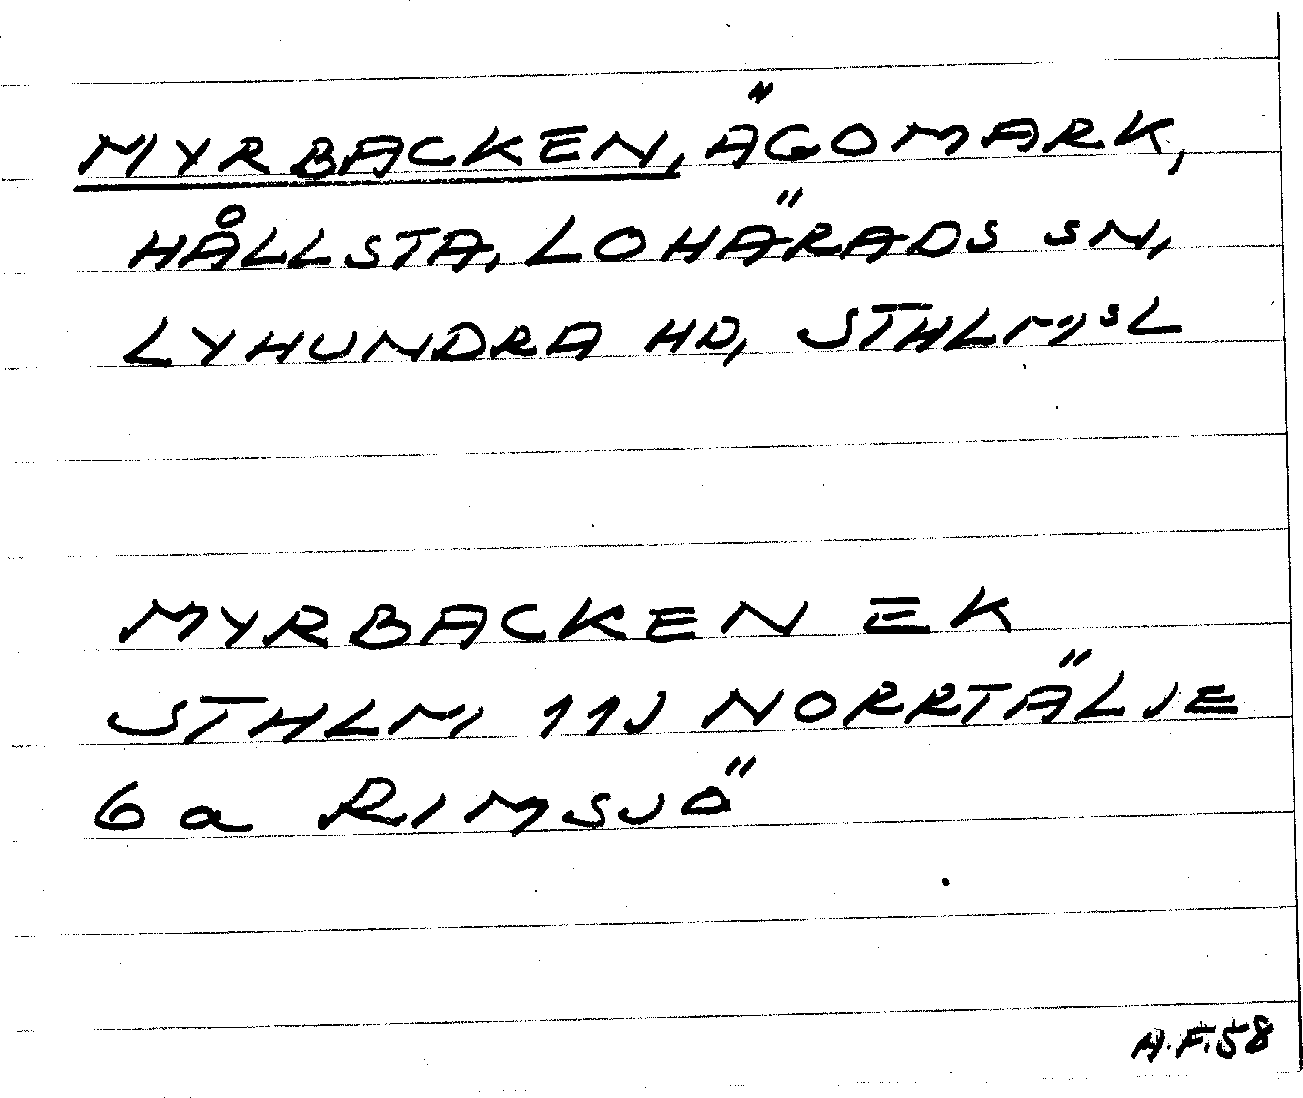 MYRBACKEN, ÄGOMARK,
HÅLLSTA, LOHÄRADS SN,
LYHUNDRA HD, STHLMSL
MYRBACKEN EK
STHLM 11J NORRTÄLJE
6a RIMSJÖ
A.F.58